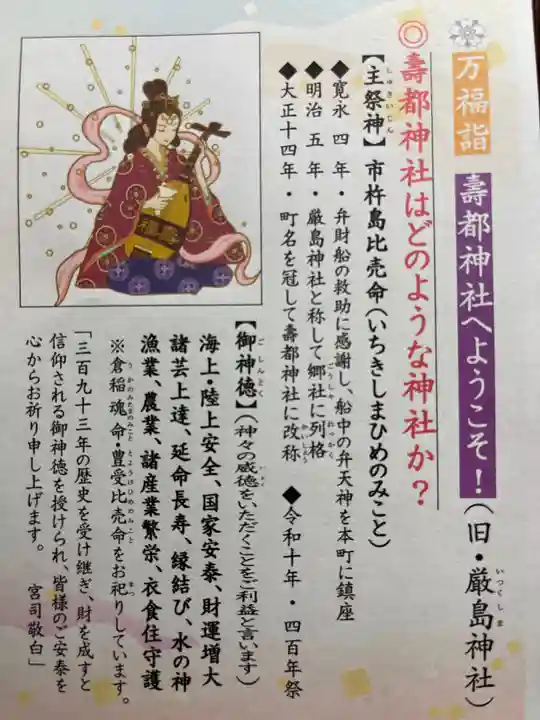 万福詣 壽都神社へようこそ！（旧・厳島神社）
いつくしま
◎壽都神社はどのような神社か？
【主祭神】市杵島比売命（いちきしまひめのみこと）
しゅさいじん
◆寛永 四 年・弁財船の救助に感謝し、船中の弁天神を本町に鎮座
◆明治 五 年・厳島神社と称して郷社に列格
ごうしゃ れっかく
◆大正十四年・町名を冠して壽都神社に改称 ◆令和十年・四百年祭
かいしょう
【御神徳】（神々の威徳をいただくことをご利益と言います）
ごしんとく
海上・陸上安全、国家安泰、財運増大
諸芸上達、延命長寿、縁結び、水の神
漁業、農業、諸産業繁栄、衣食住守護
※倉稲魂命・豊受比売命をお祀りしています。
うかのみたまのみこと とようけひめのみこと まつ
「三百九十三年の歴史を受け継ぎ、財を成すと
信仰される御神徳を授けられ、皆様のご安泰を
心からお祈り申し上げます。 宮司敬白」